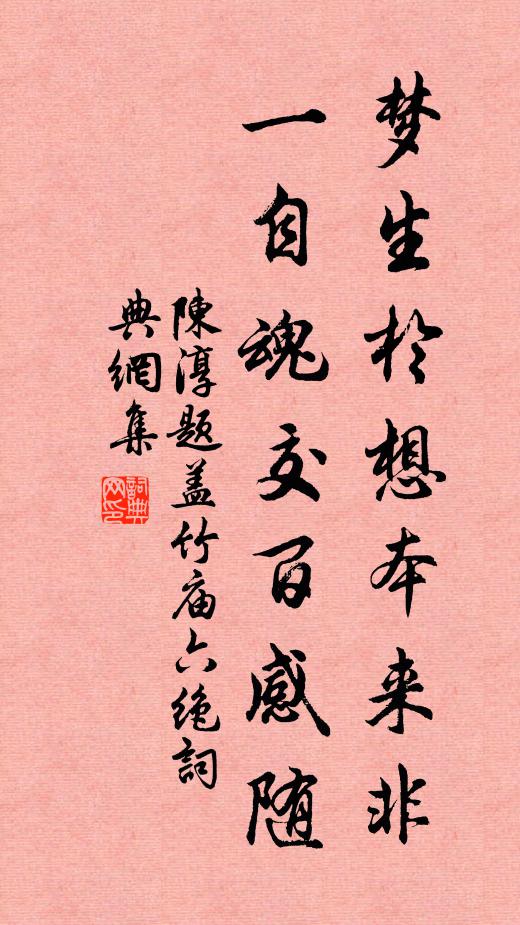 梦生於想本来非
一自魂交百感随
陳淳题盖竹庙六绝詞
典網集
詞典网印